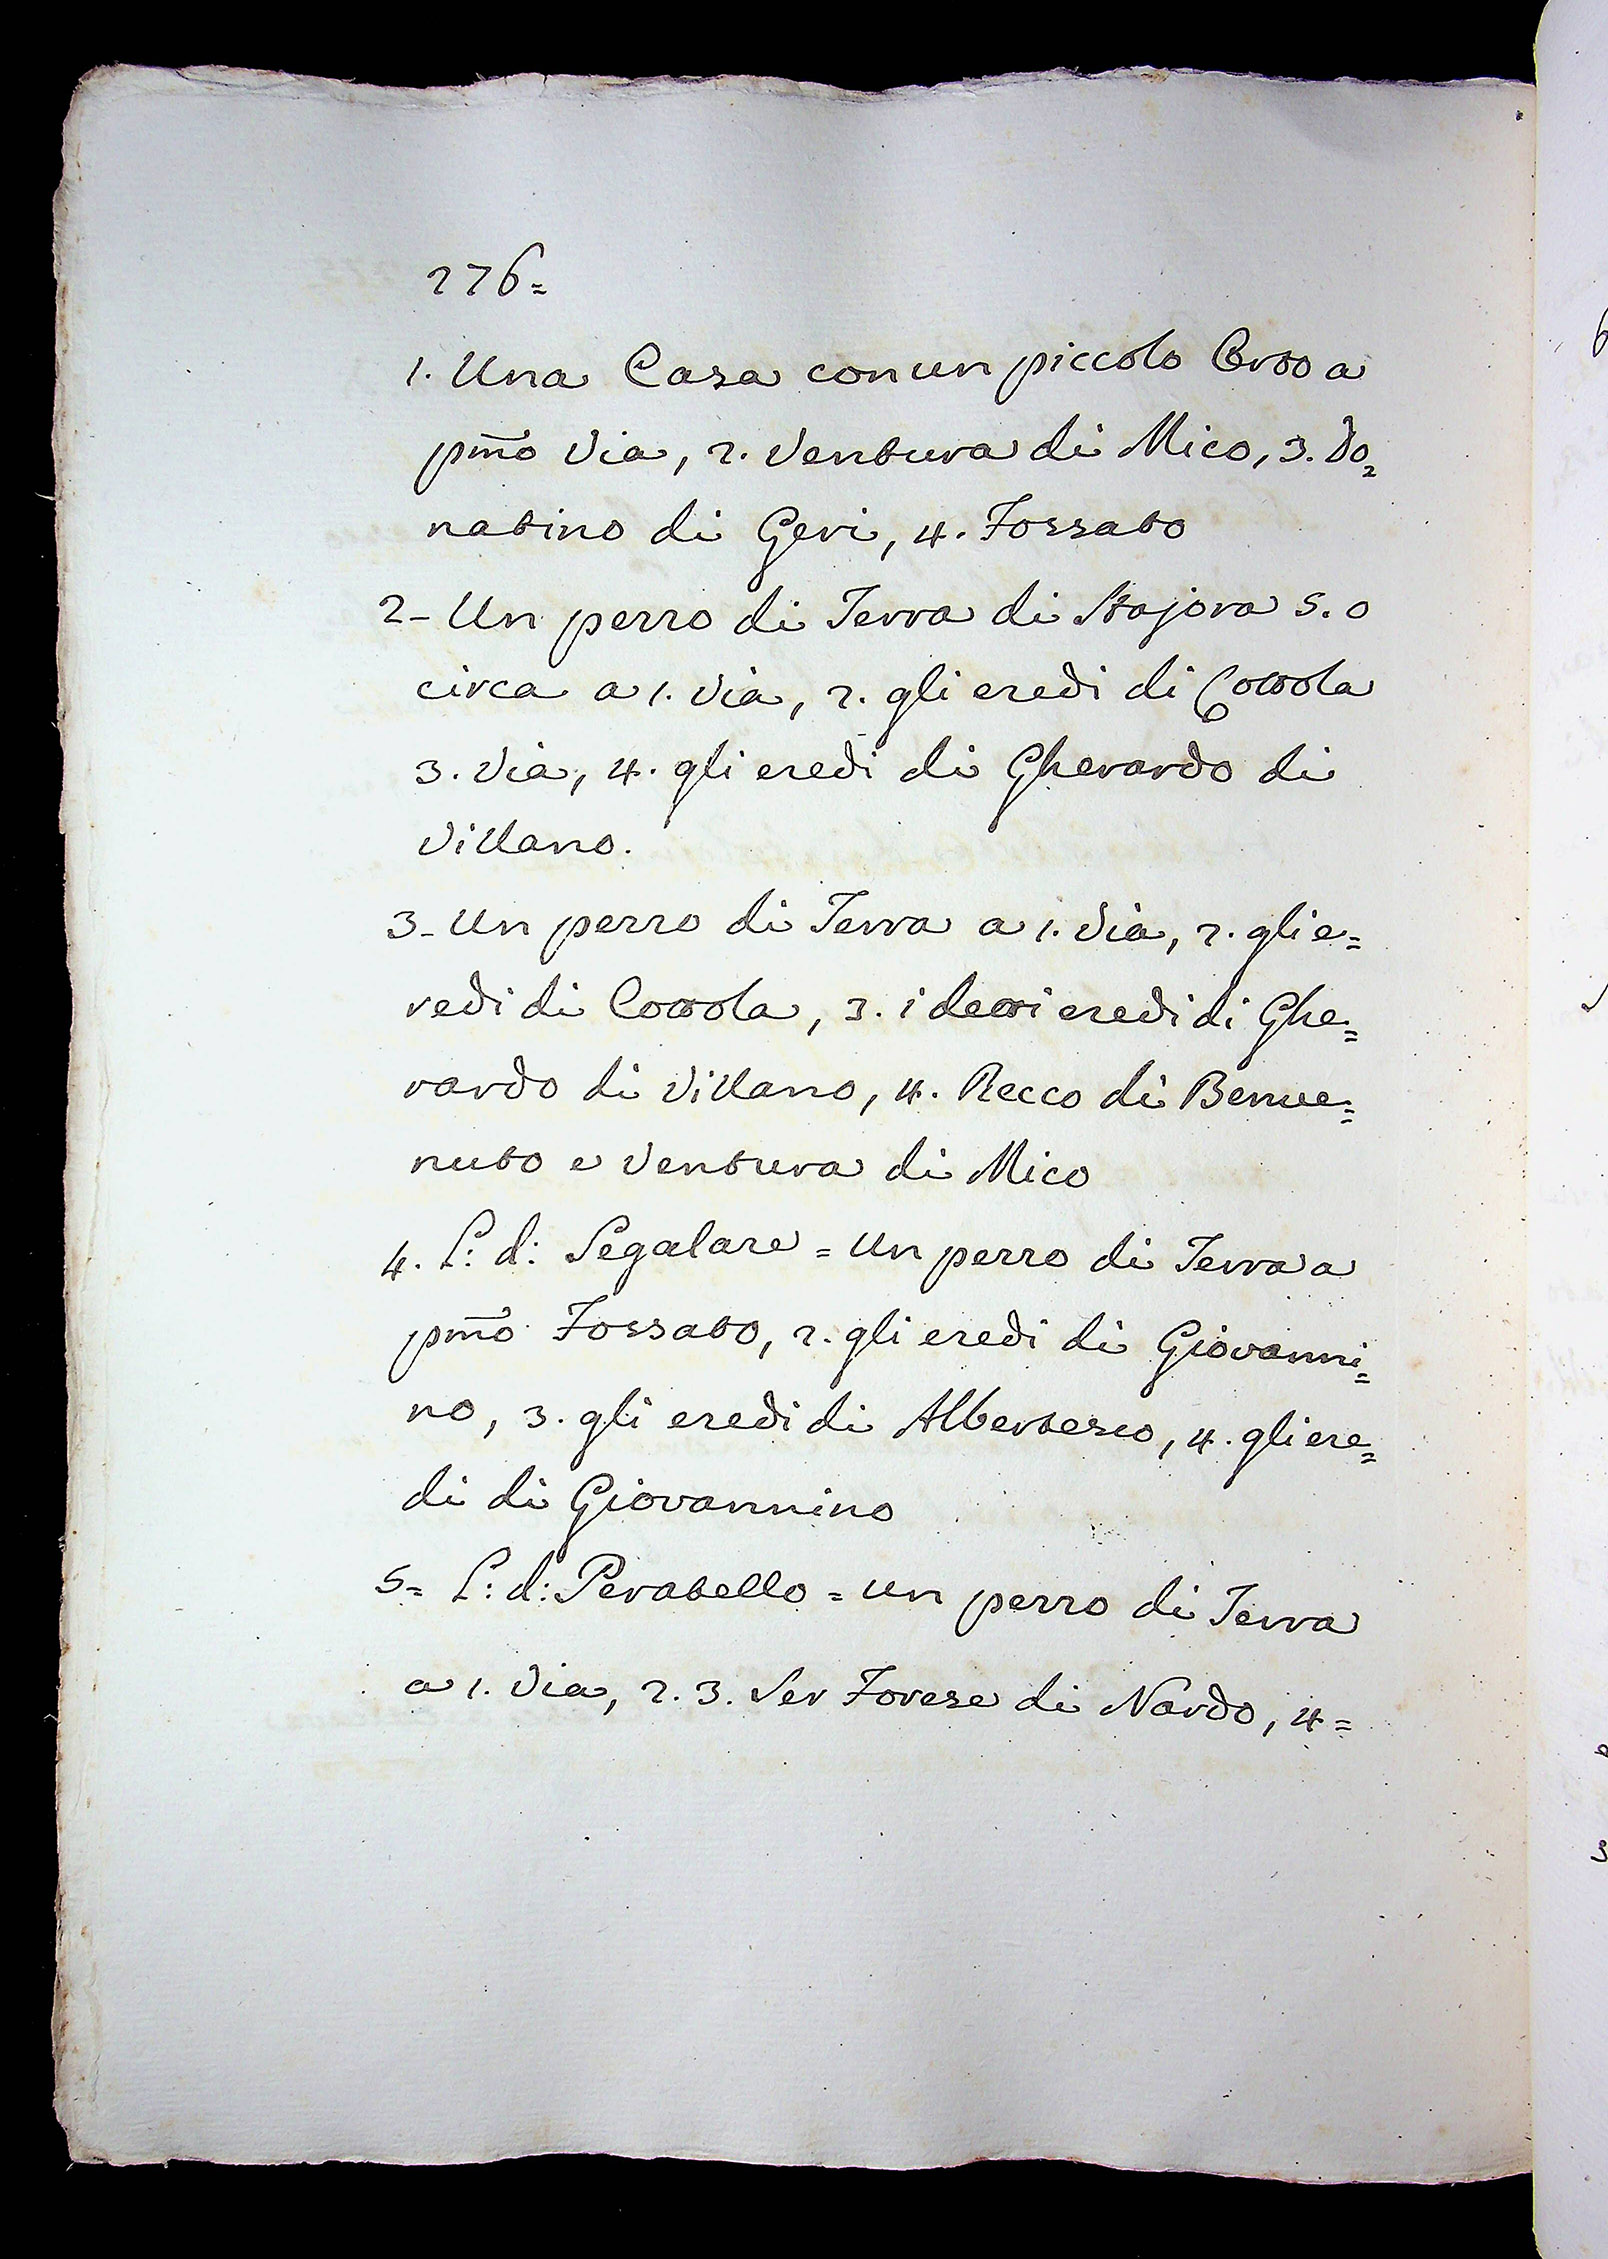 276=
1. Una Casa con un piccolo Orto a
pm̄o Via, 2. Ventura di Mico, 3. Do=
natino di Geri, 4. Fossato
2- Un pezzo di Terra di Stajora 5. o
circa a 1. Via, 2. gli eredi di Cottola
3. Via, 4. gli eredi di Gherardo di
Villano.
3- Un pezzo di Terra a 1. Via, 2. gli e=
redi di Cottola, 3. i detti eredi di Ghe=
rardo di Villano, 4. Recco di Benve=
nuto e Ventura di Mico
4. L: d: Segalare = Un pezzo di Terra a
pm̄o Fossato, 2. gli eredi di Giovanni=
no, 3. gli eredi di Albertesco, 4. gli ere=
di di Giovannino
5= L: d: Peratello = un pezzo di Terra
a 1. Via, 2. 3. Ser Forese di Nardo, 4=